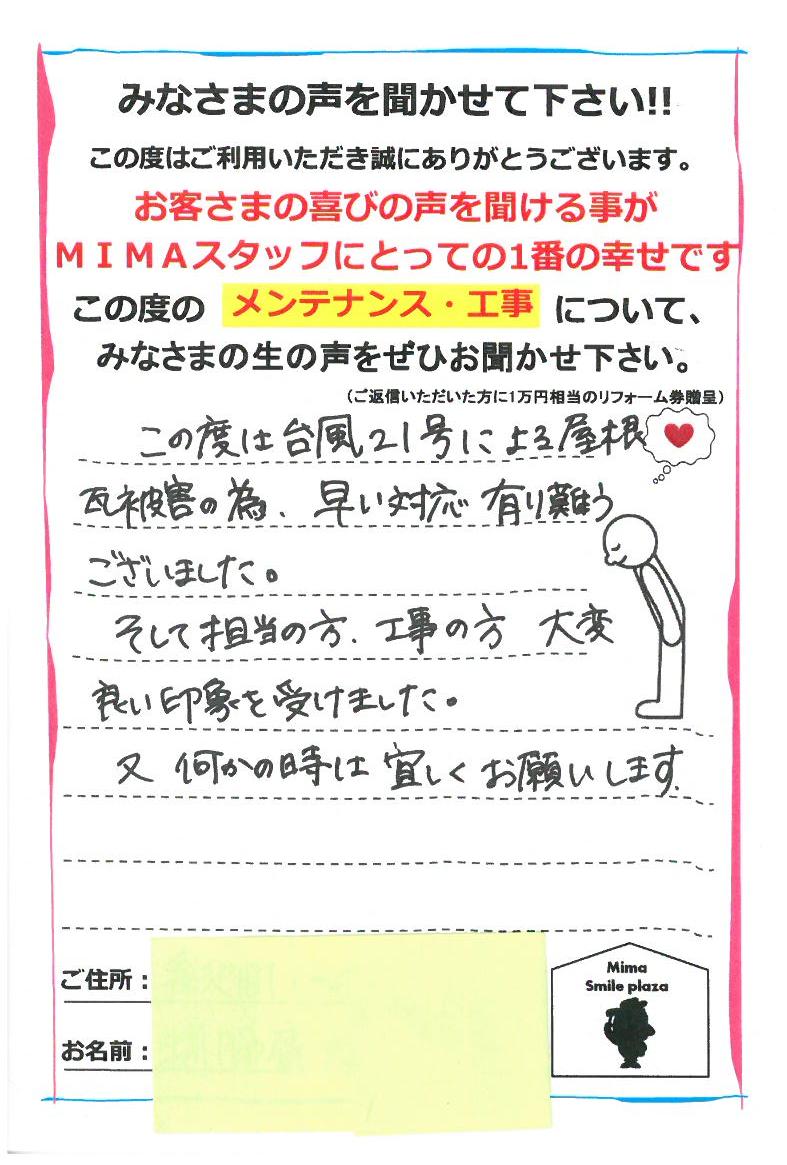 みなさまの声を聞かせて下さい!!
この度はご利用いただき誠にありがとうございます。
お客さまの喜びの声を聞ける事が
ＭＩＭＡスタッフにとっての1番の幸せです
この度の メンテナンス・工事 について、
みなさまの生の声をぜひお聞かせ下さい。
（ご返信いただいた方に1万円相当のリフォーム券贈呈）
この度は台風21号による屋根
瓦被害の為、早い対応 有り難う
ございました。
そして担当の方、工事の方 大変
良い印象を受けました。
又 何かの時は 宜しくお願いします。
ご住所：
お名前：
Mima
Smile plaza